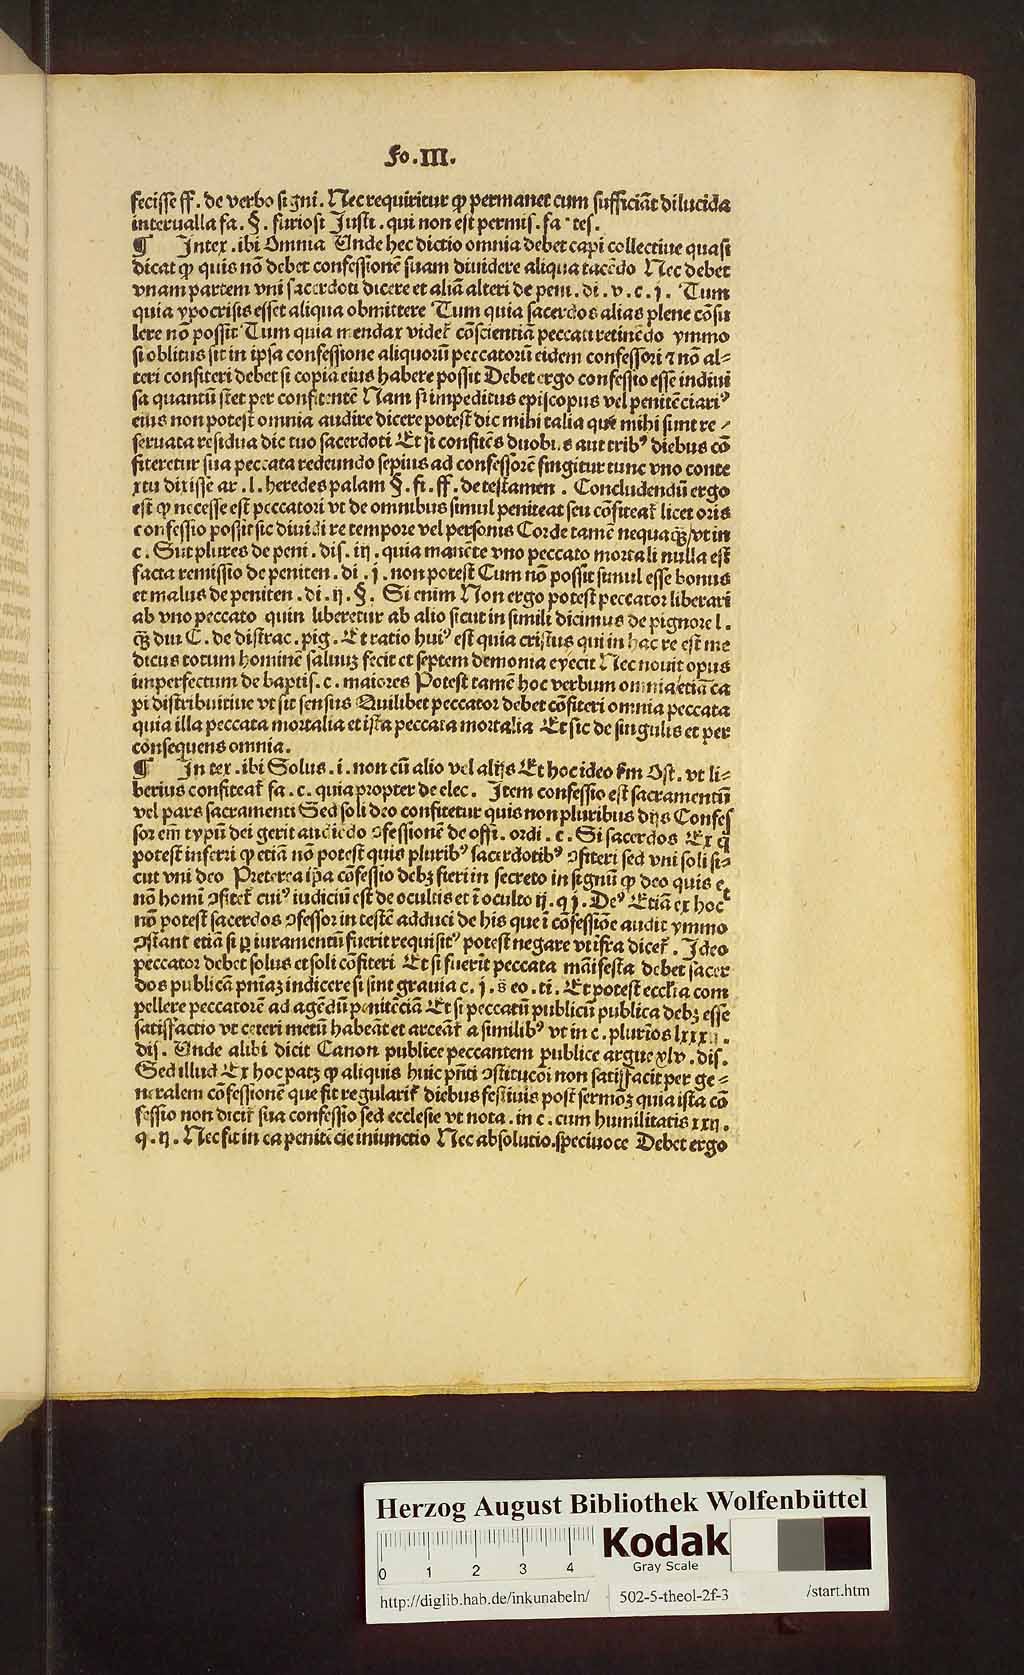 Fo.III.
fecisse ff. de verbo signi. Nec requiritur ꝙ permanet cum sufficiãt dilucida
interualla fa. §. furiosi Justi. qui non est permis. fa tes.
¶ In tex. ibi Omnia Unde hec dictio omnia debet capi collectiue quasi
dicat ꝙ quis nõ debet confessionẽ suam diuidere aliqua tacẽdo Nec debet
vnam partem vni sacerdoti dicere et aliã alteri de peni. di. v. c. j. Tum
quia ypocrisis esset aliqua obmittere Tum quia sacerdos alias plene cõsu
lere nõ possit Tum quia mendax videt᷑ cõscientiã peccati retinẽdo ymmo
si oblitus sit in ipsa confessione aliquorũ peccatorũ eidem confessori ⁊ nõ al-
teri confiteri debet si copiã eius habere possit Debet ergo confessio esse indiui
sa quantũ stet per confitentẽ Nam si impeditus episcopus vel penitẽciariꝰ
eius non potest omnia audire dicere potest dic mihi talia que mihi sunt re-
seruata residua dic tuo sacerdoti Et si confitẽs duobus aut tribꝰ diebus cõ
fiteretur sua peccata redeundo sepius ad confessorẽ fingitur tunc vno conte
xtu dixisse ar. l. heredes palam §. fi. ff. de testamen. Concludendũ ergo
est ꝙ necesse est peccatori vt de omnibus simul peniteat seu cõfiteat᷑ licet oris
confessio possit sic diuidi re tempore vel personis Corde tamẽ nequaꝗ̃ vt in
c. Sut plures de peni. dis. iij. quia manẽte vno peccato mortali nulla est
facta remissio de peniten. di. j. non potest Cum nõ possit simul esse bonus
et malus de peniten. di. ij. §. Si enim Non ergo potest peccator liberari
ab vno peccato quin liberetur ab alio sicut in simili dicimus de pignore l.
ꝗ̃ diu C. de distrac. pig. Et ratio huiꝰ est quia cristus qui in hac re est me
dicus totum hominẽ saluuꝫ fecit et septem demonia eyecit Nec nouit opus
imperfectum de baptis. c. maiores Potest tamẽ hoc verbum omnia etiã ca
pi distributiue vt sit sensus Quilibet peccator debet cõfiteri omnia peccata
quia illa peccata mortalia et ista peccata mortalia Et sic de singulis et per
consequens omnia.
¶ In tex. ibi Solus. i. non cũ alio vel alijs Et hoc ideo fm Ost. vt li-
berius confiteat᷑ fa. c. quia propter de elec. Item confessio est sacramentũ
vel pars sacramenti Sed soli deo confitetur quis non pluribus dijs Confes
sor em̃ typũ dei gerit audiẽdo ↄfessionẽ de offi. ordi. c. Si sacerdos Ex q̃
potest inferri ꝙ etiã nõ potest quis pluribꝰ sacerdotibꝰ ↄfiteri sed vni soli si-
cut vni deo Preterea ip̃a cõfessio debꝫ fieri in secreto in signũ ꝙ deo quis et
nõ homĩ ↄfitet᷑ cuiꝰ iudiciũ est de ocultis et ĩ oculto ij. q j. Deꝰ Etiã ex hoc
nõ potest sacerdos ↄfessor in testẽ adduci de his que ĩ cõfessiõe audit ymmo
ↄstant etiã si ꝑ iuramentũ fuerit requisitꝰ potest negare vt ĩfra dicet᷑. Ideo
peccator debet solus et soli cõfiteri Et si fuerĩt peccata mãifesta debet sacer
dos publicã pñiaꝫ indicere si sint grauia c. j. s̃ eo. ti. Et potest eccl̃ia com
pellere peccatorẽ ad agẽdũ penitẽciã Et si peccatũ publicũ publica debꝫ esse
satisfactio vt ceteri metũ habeãt et arceãt᷑ a similibꝰ vt in c. plurios lxxxij.
dis. Unde alibi dicit Canon publice peccantem publice argue xlv. dis.
Sed illud Ex hoc patꝫ ꝙ aliquis huic pñti ↄstitucoĩ non satisfacit per ge-
neralem cõfessionẽ que fit regularit᷑ diebus festiuis post sermõꝫ quia ista cõ
fessio non dicit᷑ sua confessio sed ecclesie vt nota. in c. cum humilitatis xxij.
q. ij. Nec fit in ea penitẽcie iniunctio Nec absolutio. speciuoce Debet ergo
Herzog August Bibliothek Wolfenbüttel
Kodak
Gray Scale
0 1 2 3 4
http://diglib.hab.de/inkunabeln/ 502-5-theol-2f-3 /start.htm